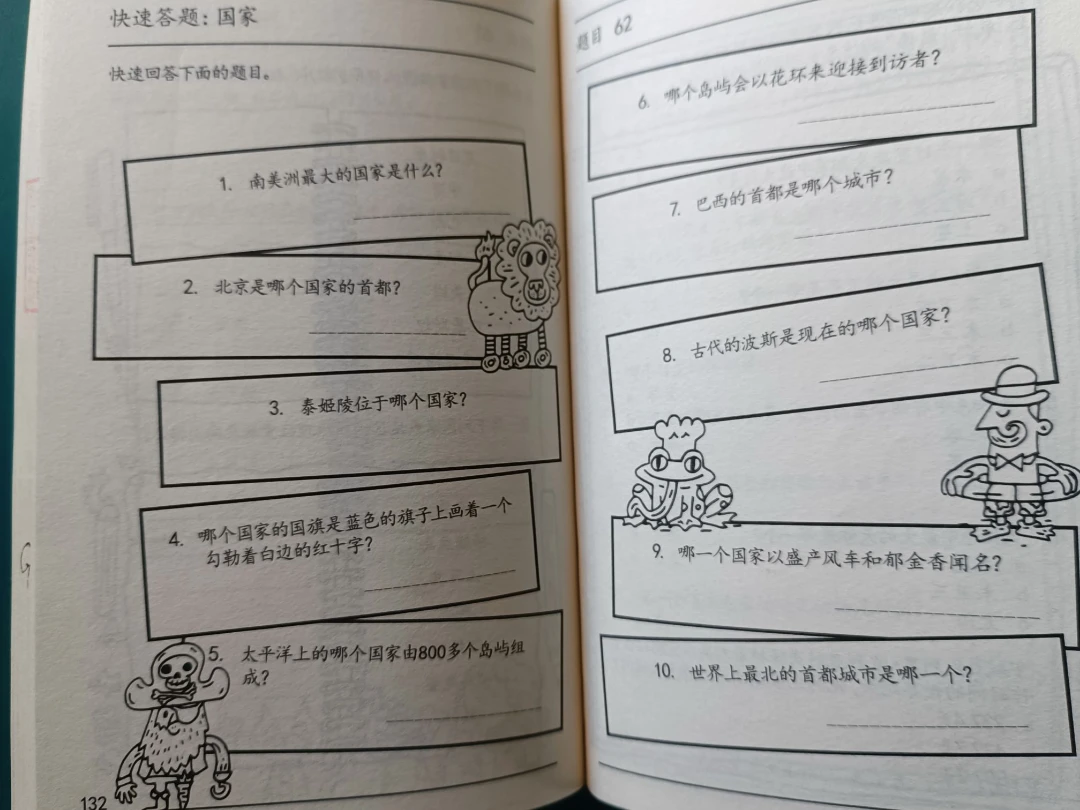 快速答题：国家
快速回答下面的题目。
1. 南美洲最大的国家是什么？
2. 北京是哪个国家的首都？
3. 泰姬陵位于哪个国家？
4. 哪个国家的国旗是蓝色的旗子上画着一个
勾勒着白边的红十字？
5. 太平洋上的哪个国家由800多个岛屿组
成？
132
题目 62
6. 哪个岛屿会以花环来迎接到访者？
7. 巴西的首都是哪个城市？
8. 古代的波斯是现在的哪个国家？
9. 哪一个国家以盛产风车和郁金香闻名？
10. 世界上最北的首都城市是哪一个？